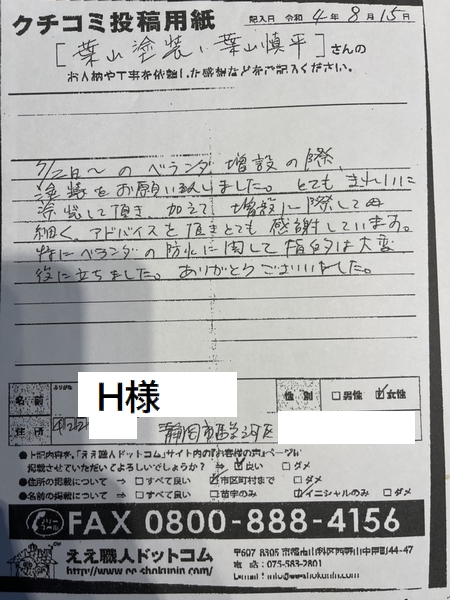 クチコミ投稿用紙
記入日 令和 4年 8月 15日
[葉山塗装、葉山慎平]さんの
お人柄や工事を依頼した感想などをご記入ください。
7/2日〜のベランダ増設の際、
塗装をお願い致しました。とてもきれいに
塗装して頂き、加えて、増設に際しても
細く、アドバイスを頂きとても感謝しています。
特にベランダの防水に関して指摘は大変
役に立ちました。ありがとうございました。
名前
ふりがな
H様
性別
□男性 ☑女性
住所
静岡市駿河区
●上記内容を、「ええ職人ドットコム」サイト内の「お客様の声」ページへ
掲載させていただいてよろしいでしょうか? ⇒ ☑良い □ダメ
●住所の掲載について ⇒ □すべて良い ☑市区町村まで □ダメ
●名前の掲載について ⇒ □すべて良い □苗字のみ ☑イニシャルのみ □ダメ
フリーコール
FAX 0800-888-4156
ええ職人ドットコム
http://www.ee-shokunin.com/
〒607-8305 京都市山科区西野山中臣町44-47
電話:075-583-2801
E-mail:info@ee-shokunin.com